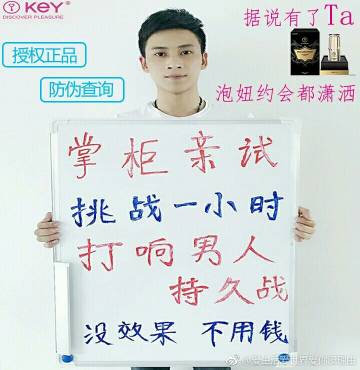 KEY®
DISCOVER PLEASURE
据说有了Ta
授权正品
防伪查询
泡妞约会都潇洒
掌柜亲试
挑战一小时
打响男人
持久战
没效果 不用钱